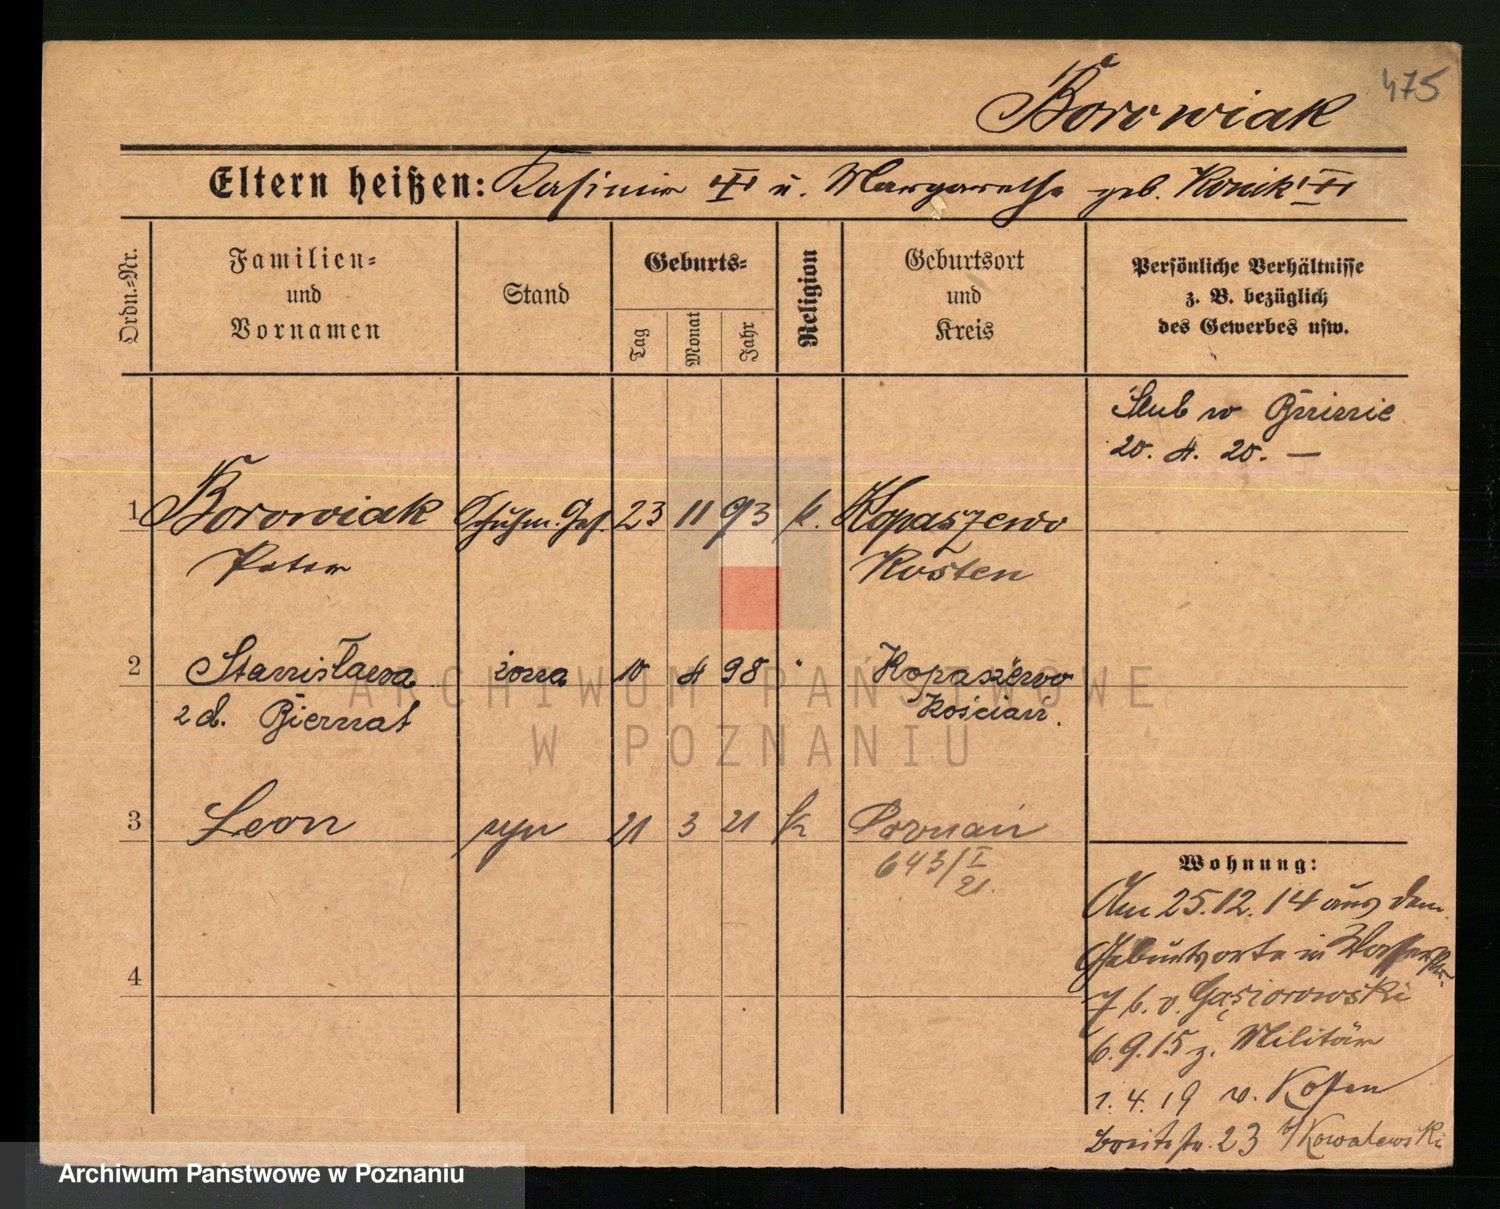 475
Borowiak
Eltern heißen: Kasimir u. Margarethe geb. Konik
Ordn.-Nr.
Familien-
und
Vornamen
Stand
Geburts-
Tag
Monat
Jahr
Religion
Geburtsort
und
Kreis
Persönliche Verhältnisse
z. B. bezüglich
des Gewerbes usw.
Ślub w Bninie
20. 4. 20. —
1 Borowiak Schuhm. Ges. 23 11 93 k. Kopaszewo
Peter Kosten
2 Stanisława żona 10 4 98 " Kopaszewo
z d. Biernat Kościan.
3 Leon syn 21 3 21 k Poznań
643/I
21.
4
Wohnung:
Am 25.12.14 aus dem
Geburtsorte in Wasserstr.
7 b. v. Gąsiorowski
6.9.15 z. Militär
1.4.19 v. Kosten
Breitestr. 23 b/Kowalewski
ARCHIWUM PAŃSTWOWE
W POZNANIU
Archiwum Państwowe w Poznaniu